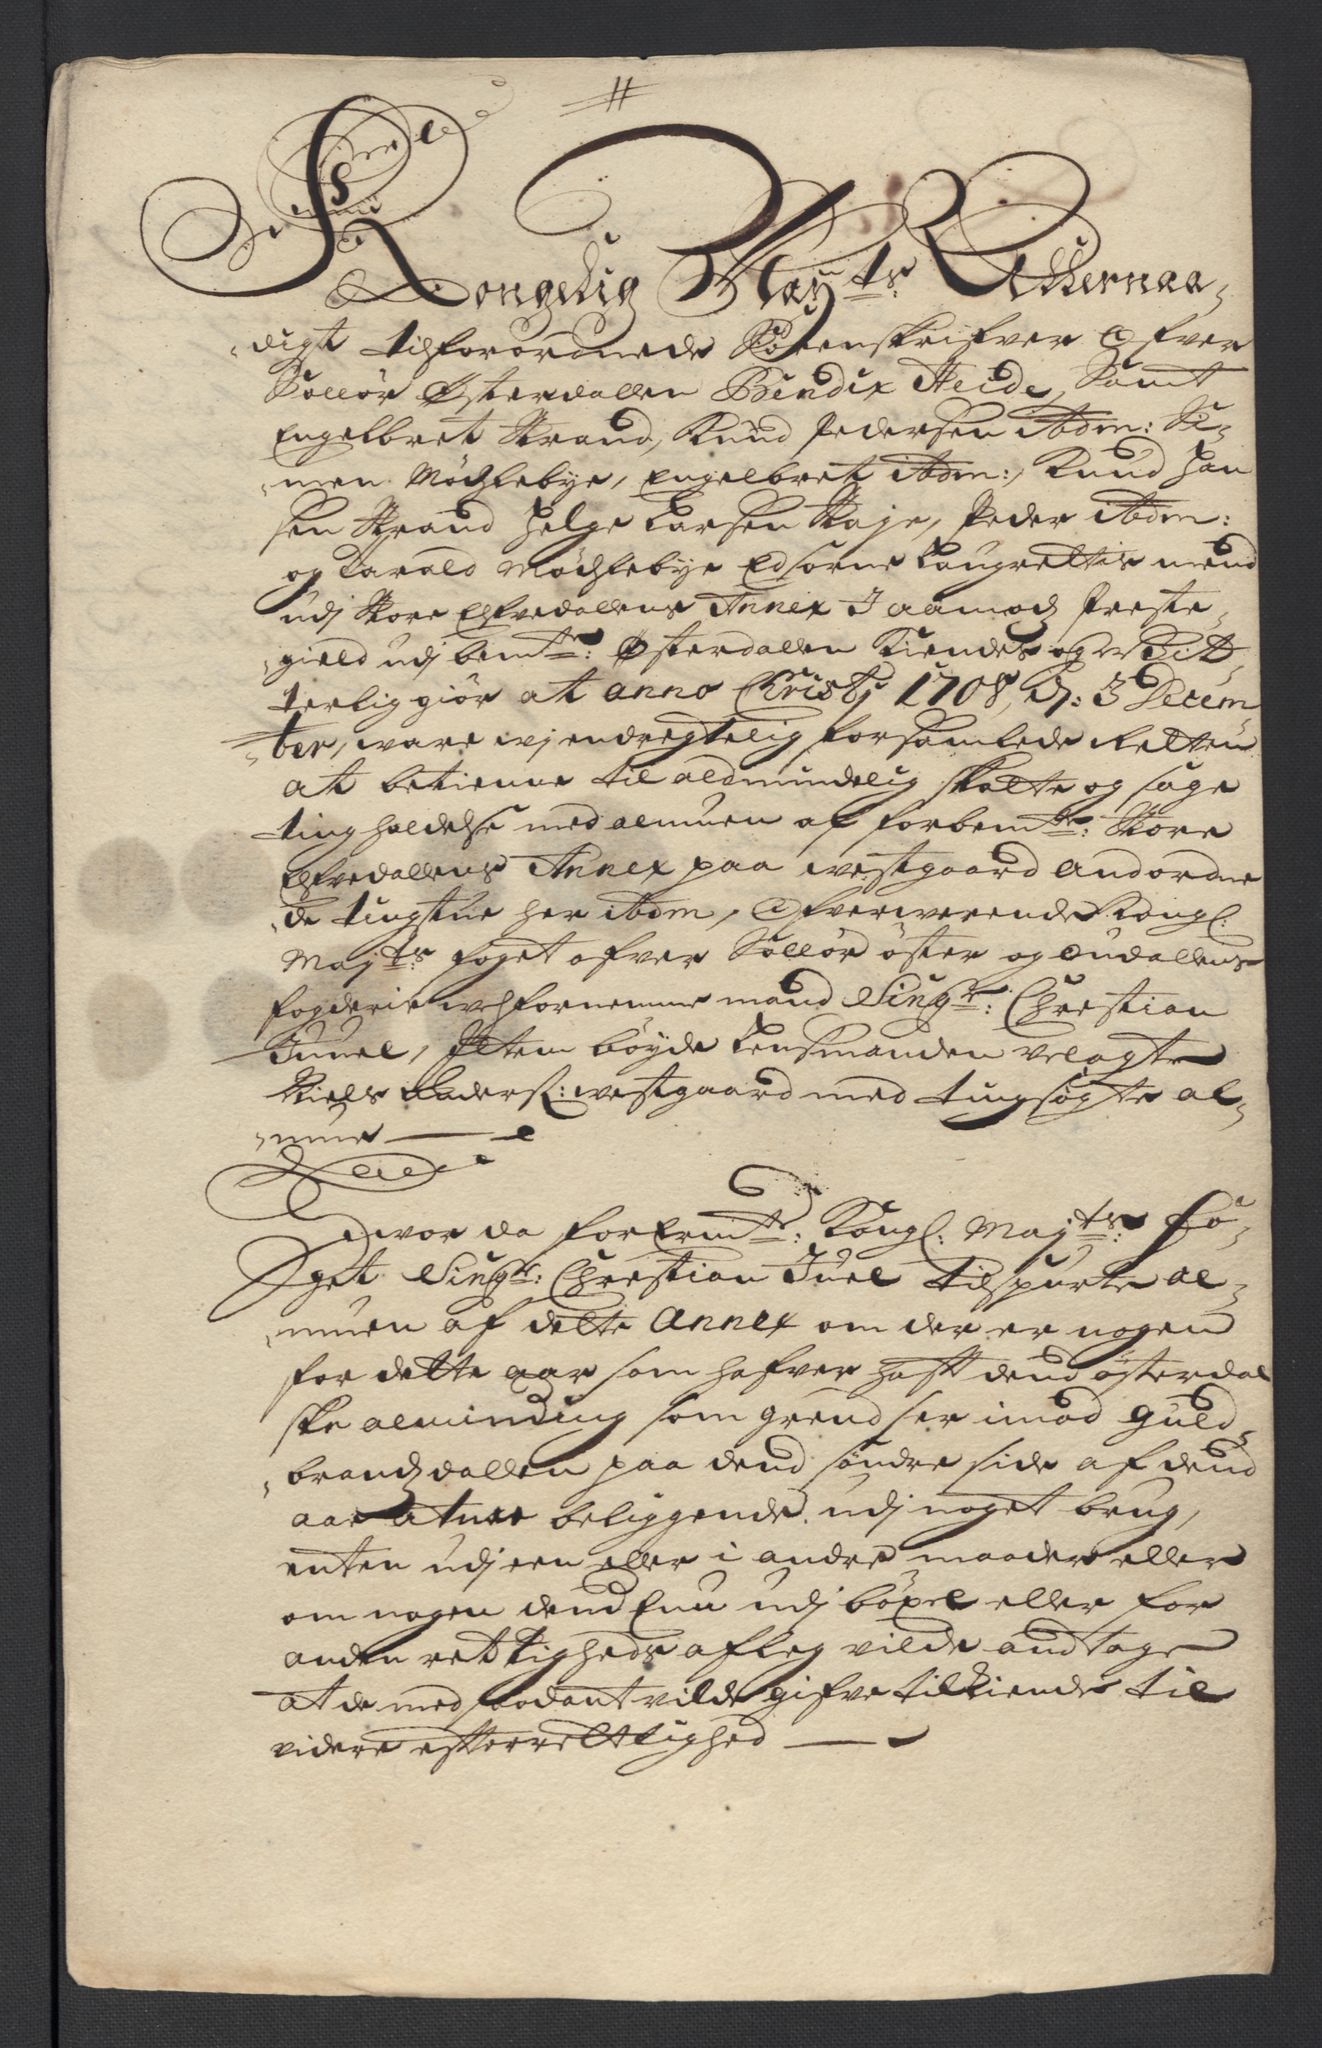 Kongelig Mayts Allernaa-
digst tilforordnede Sorenskrifver Ofver
Sollør Østerdallen Bendix Heide, Samt
Engelbret Strand, Knud Pedersen ibdm: Si-
men Møchlebye, Engelbret ibdm:, Knud Han
sen Strand Helge Larsen Staje, Peder ibdm:
og Harald Møchlebye Edsorne Laugrettis mend
udj Store Elfvedallens Annex I aamods Preste-
gield udj bemte: Østerdallen Kiendes og Vit-
terlig giør at anno Christj 1708, d: 3 Decem
ber, ware wj endregtelig forsamlede Retten
at betienne til aldmindelig skatte og sage
ting holdelse med almuen af forbemte: Store
Elfvedallens Annex paa westgaard andordne
de tingstue her ibdm, Ofverwerende Kongl:
Mayts foget ofver Sollør øster og Oudallens
fogderie welfornemme mand Singr: Christian
Juuel, Item bøyde Lensmanden velagte
Niels Anders: westgaard med tingsøgte al-
mue
Hvor da for Ermte: Kongl: Mayts: Fo-
get Singr: Christian Juel tilspurte al-
muen af dette Annex om der er nogen
for dette aar som hafver haft dend østerdal
ske alminding som grendser imod Guld-
brandzdallen paa dend søndre side af dend
aae Atnee beliggende udj noget brug,
enten udj een eller i andre maader eller
om nogen dend Enu udj böxel eller for
anden rettigheds afleg vilde andtage
at de med saadant vilde gifve tilkiende til
videre efterrettlighed